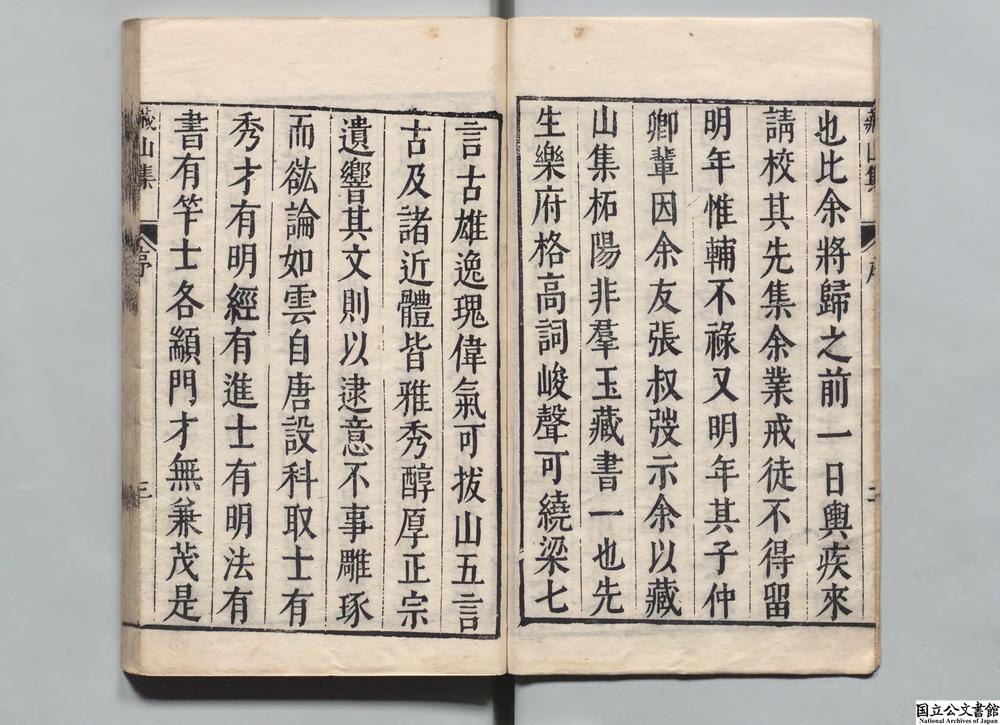 也比余將歸之前一日輿疾來
請校其先集余業戒徒不得留
明年惟輔不祿又明年其子仲
卿輩因余友張叔弢示余以藏
山集柘陽非羣玉藏書一也先
生樂府格高詞峻聲可繞梁七
言古雄逸瑰偉氣可拔山五言
古及諸近體皆雅秀醇厚正宗
遺響其文則以逮意不事雕琢
而欲論如雲自唐設科取士有
秀才有明經有進士有明法有
書有竿士各顓門才無兼茂是
藏山集
序
三
国立公文書館
National Archives of Japan